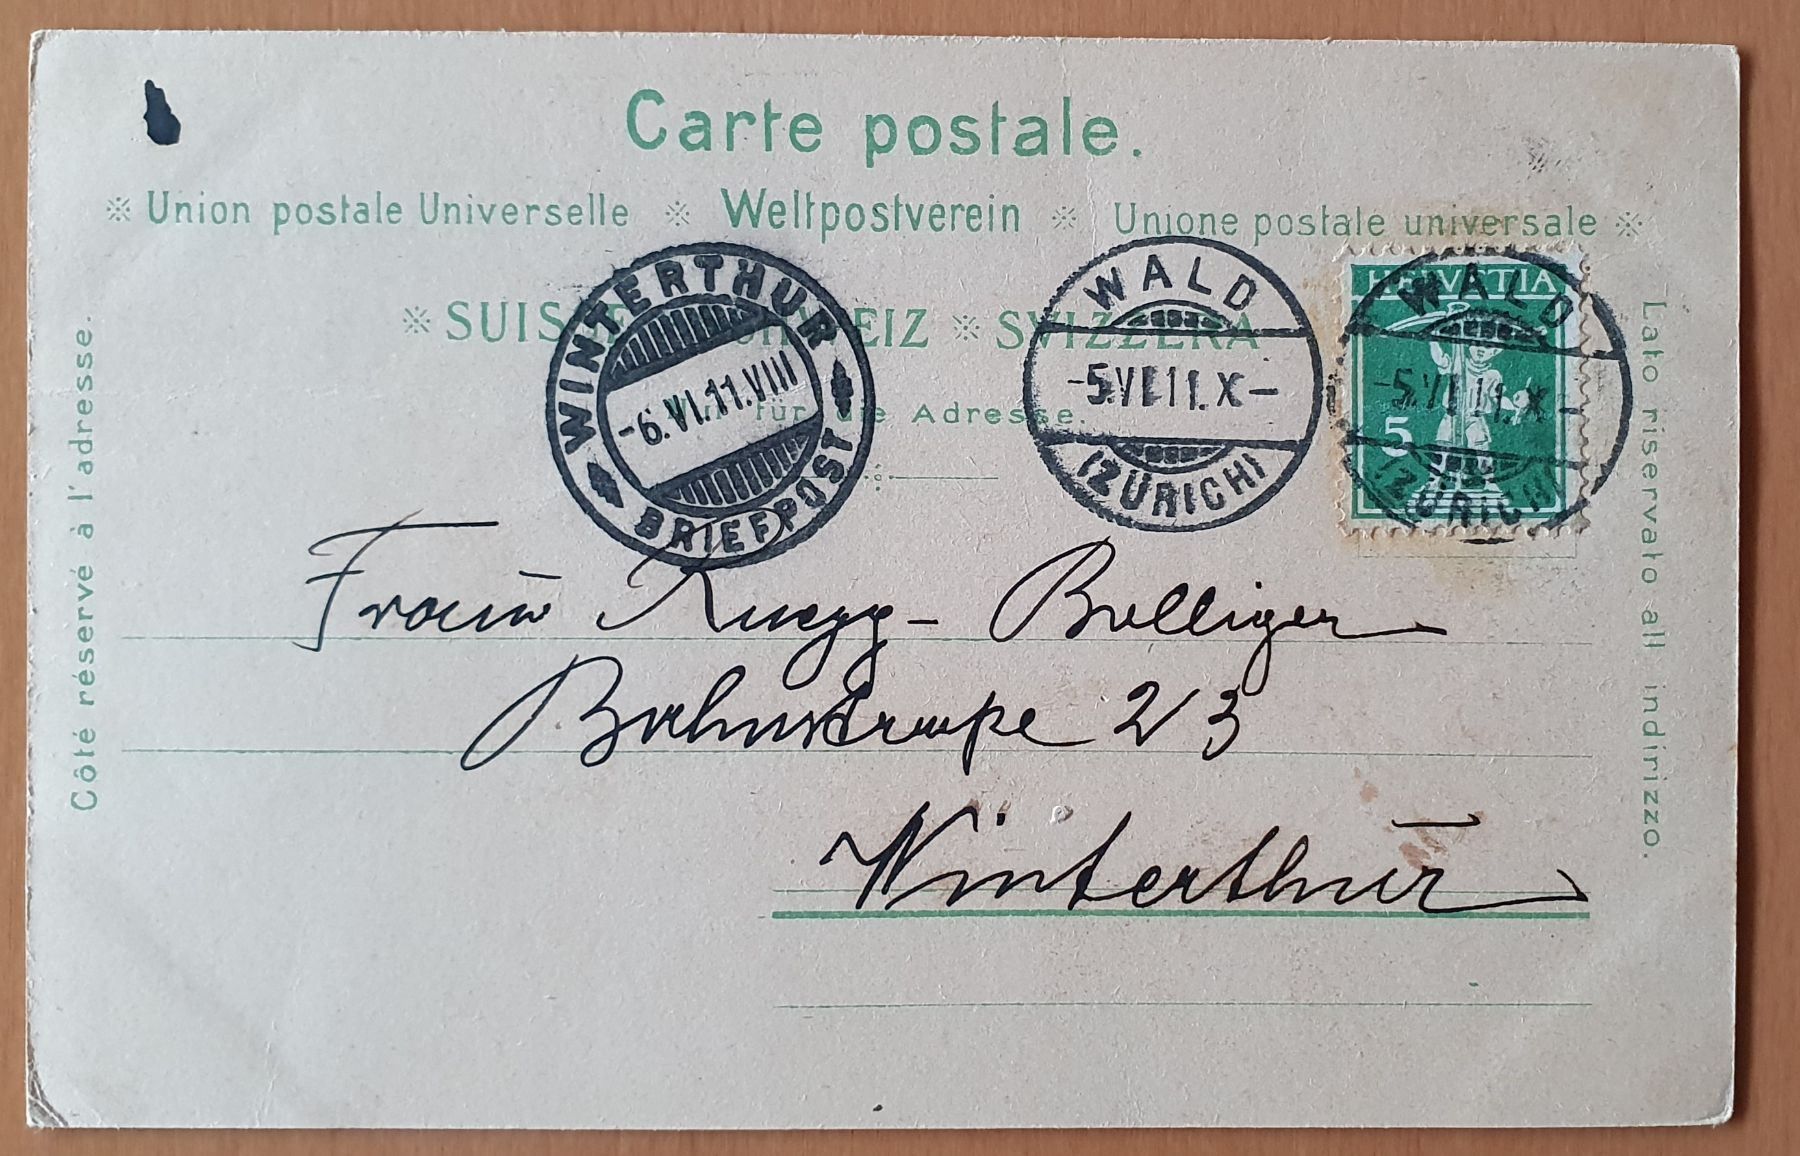 Carte postale.
※ Union postale Universelle ※ Weltpostverein ※ Unione postale universale ※
※ SUISSE SCHWEIZ ※ SVIZZERA
Nur für die Adresse.
Côté réservé à l'adresse.
Lato riservato all indirizzo.
WINTERTHUR
-6.VI.11.VIII
BRIEFPOST
WALD
-5.VI.11.X-
(ZÜRICH)
HELVETIA
5
WALD
-5.VI.11.X-
(ZÜRICH)
Frau Ruegg-Bolliger
Bahnstraße 23
Winterthur